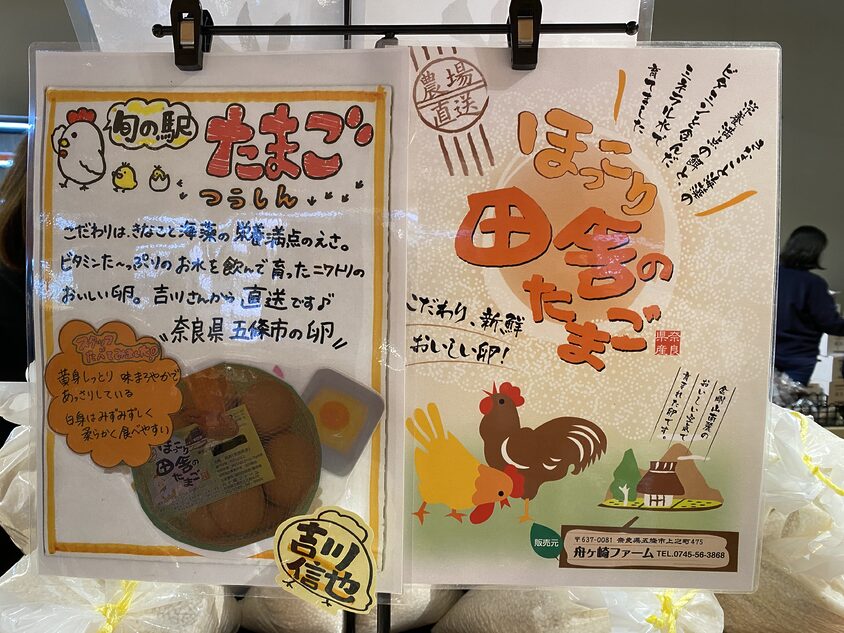 旬の駅
たまご
つうしん
こだわりは、きなこと海藻の栄養満点のえさ。
ビタミンた〜っぷりのお水を飲んで育ったニワトリの
おいしい卵。吉川さんから直送です♪
〝奈良県五條市の卵〟
スタッフ
たべてみました!
黄身しっとり 味まろやかで
あっさりしている
白身はみずみずしく
柔らかく食べやすい
ほっこり
田舎の
たまご
吉川
信也
農場
直送
きなこと海藻の
栄養満点の餌と、
ビタミンを含んだ
ミネラル水で
育てました
ほっこり
田舎の
たまご
奈良
県産
こだわり、新鮮
おいしい卵!
金剛山南麓の
おいしい空気で
育まれた卵です。
販売元
〒637-0081 奈良県五條市上之町475
舟ヶ崎ファーム TEL.0745-56-3868